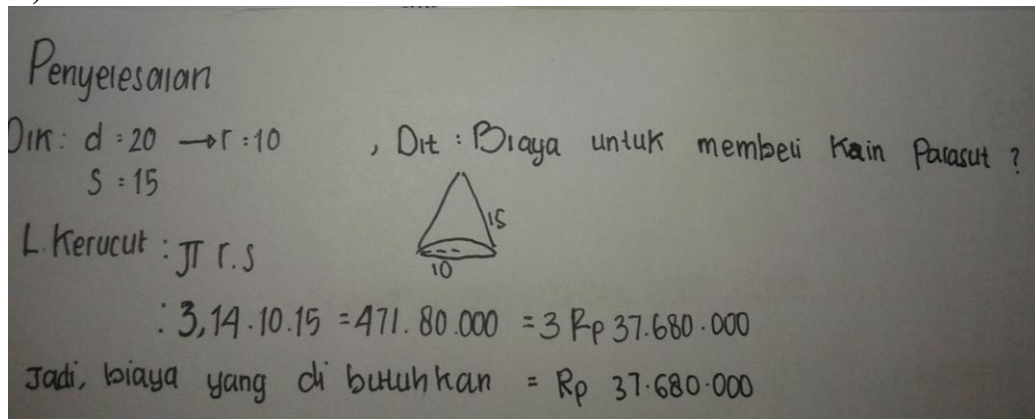 Penyelesaian
Dik: d = 20 → r = 10 , Dit : Biaya untuk membeli kain Parasut ?
S = 15
15
L. Kerucut : π r.s
10
: 3,14 . 10 . 15 = 471. 80.000 = 3 Rp 37.680.000
Jadi, biaya yang di butuhkan = Rp 37.680.000